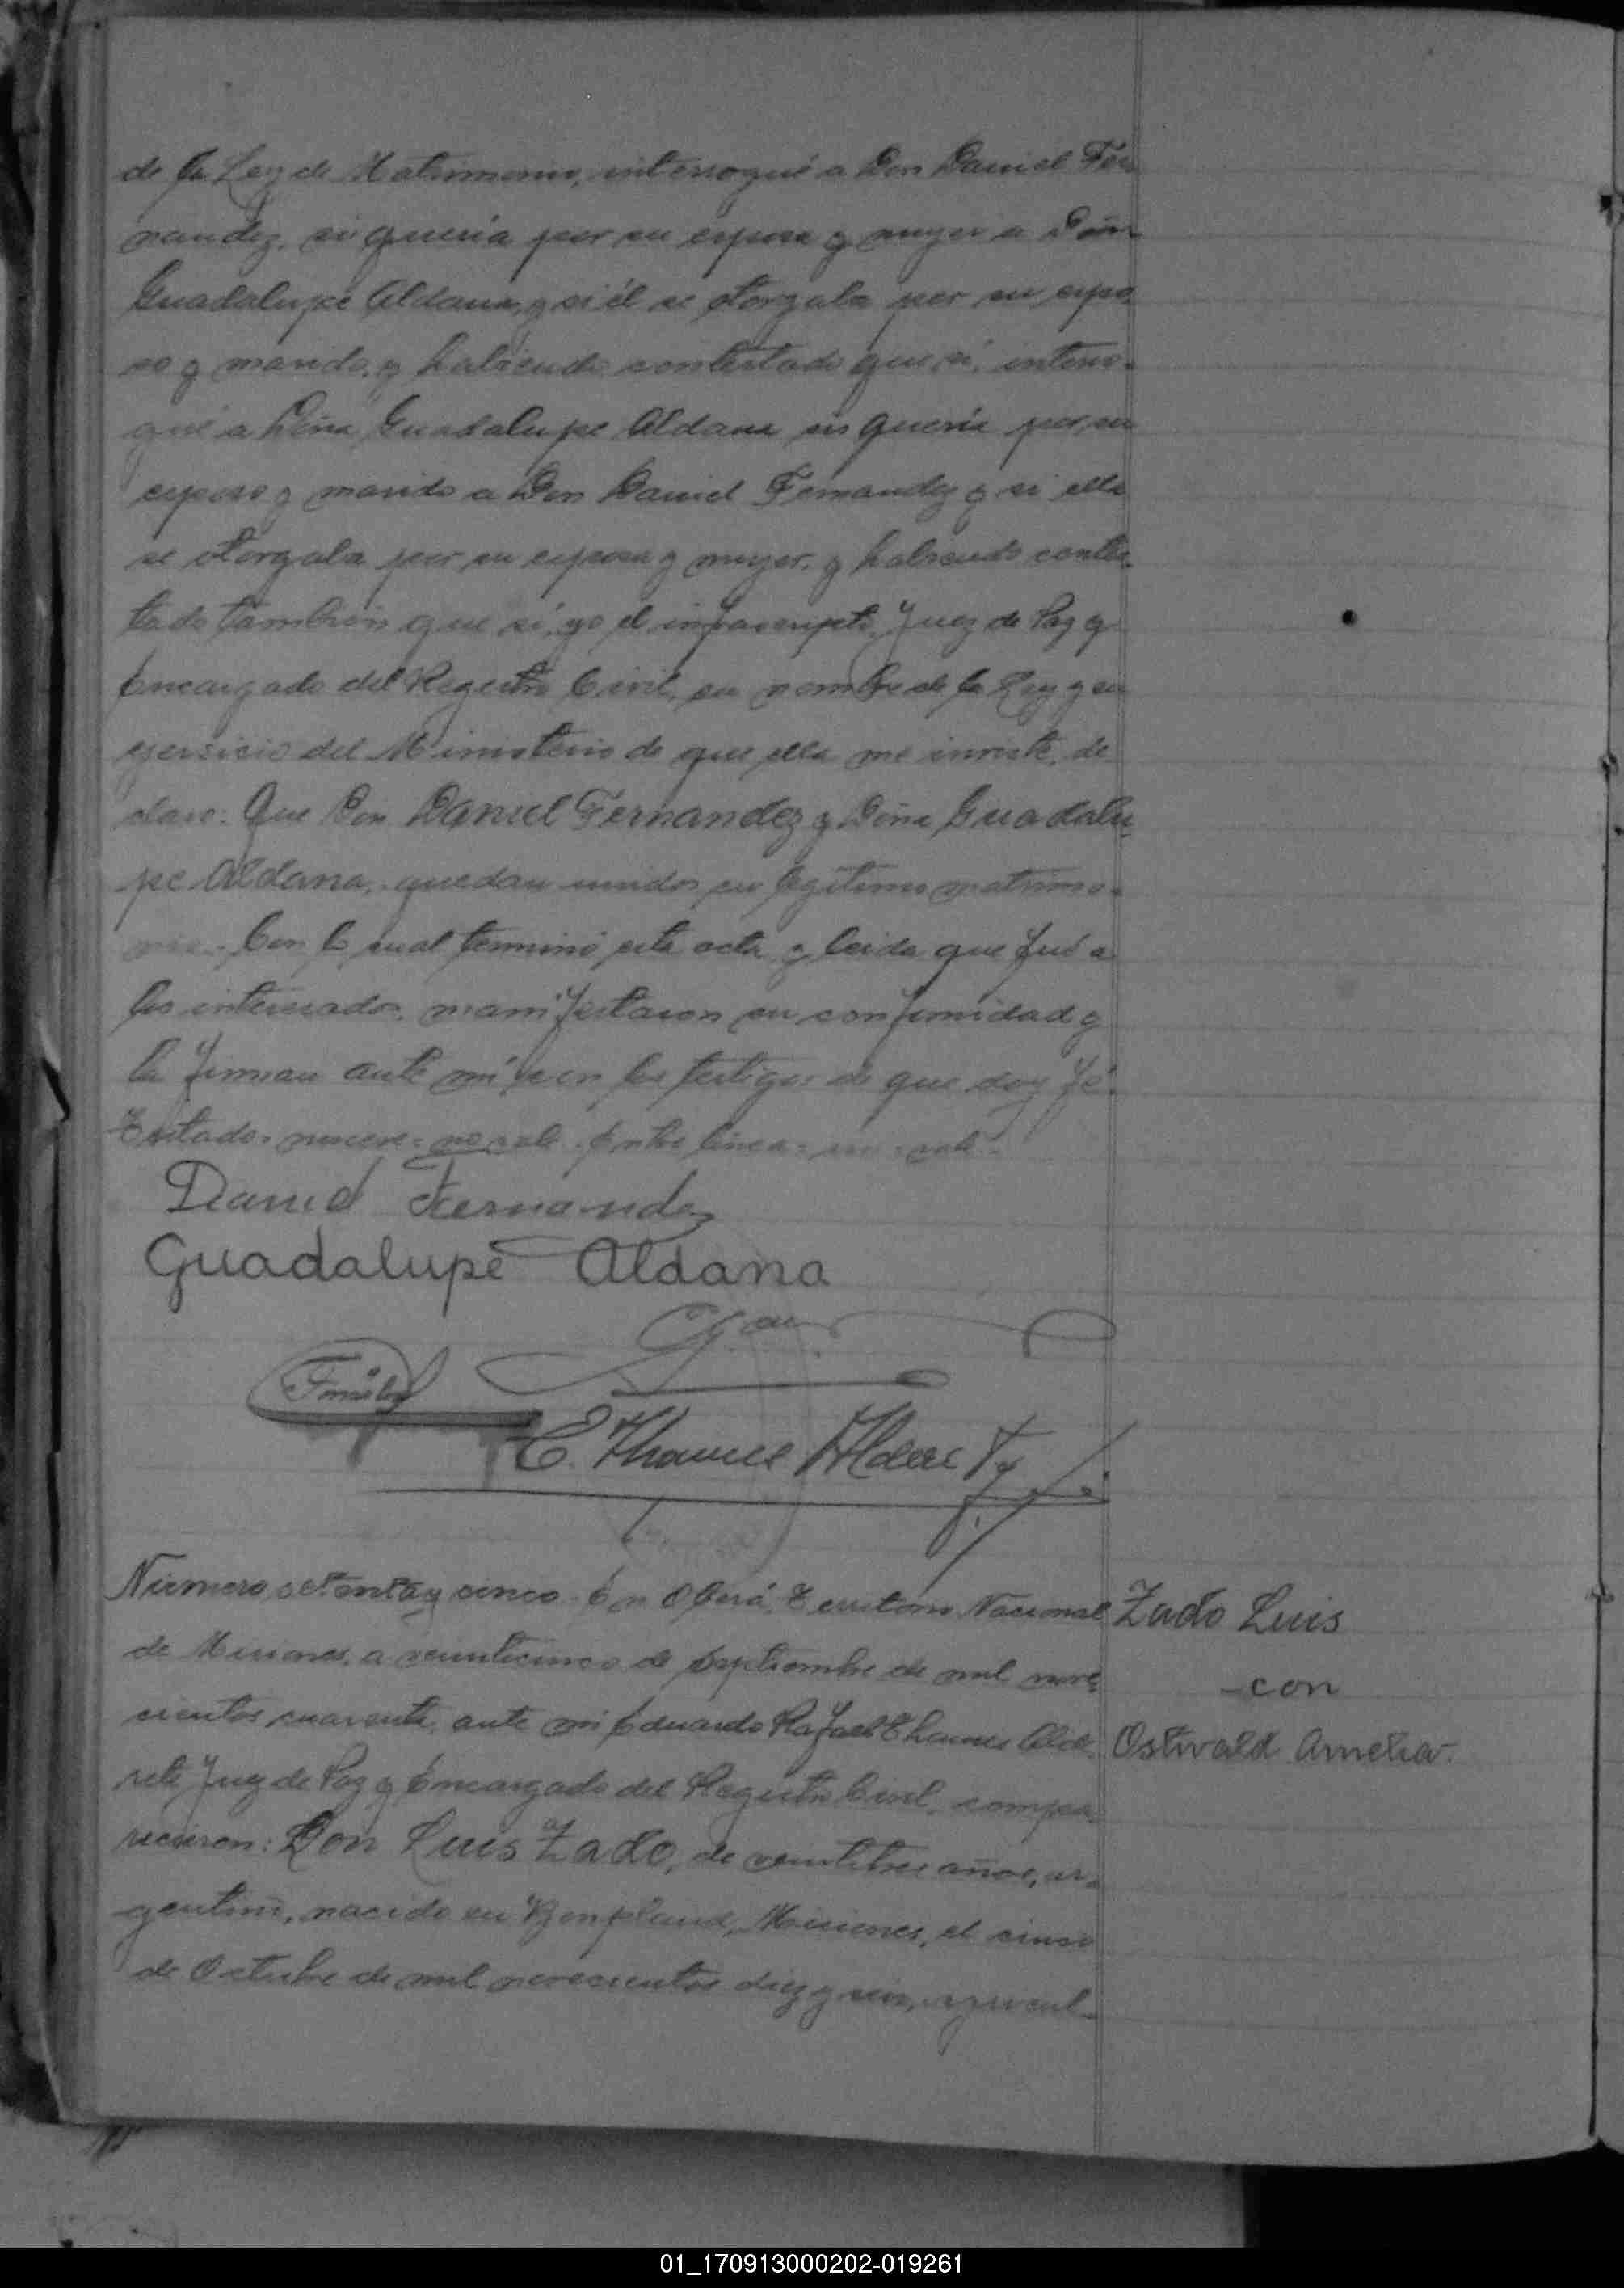 de la Ley de Matrimonio, interrogué a Don Daniel Fer-
nandez, si quería por su esposa y mujer a Doña
Guadalupe Aldana, y si él se otorgaba por su espo
so y marido, y habiendo contestado que sí, interro-
gué a Doña Guadalupe Aldana si quería por su
esposo y marido a Don Daniel Fernandez y si ella
se otorgaba por su esposa y mujer, y habiendo contes-
tado también que sí, yo el infrascripto, Juez de Paz y
Encargado del Registro Civil, en nombre de la Ley y en
ejersicio del Ministerio de que ella me inviste, de
claro: Que Don Daniel Fernandez y Doña Guadalu-
pe Aldana, quedan unidos en legítimo matrimo-
nio. Con lo cual terminó esta acta y leída que fué a
los interesados, manifestaron su conformidad y
la firman ante mí, con los testigos de que doy fé.
Testado= no vale. Entre línea= vale.
Daniel Fernandez
Guadalupe Aldana
E. Thames Alderete
Número setenta y cinco. En Oberá, Territorio Nacional
de Misiones, a veinticinco de Septiembre de mil nove-
cientos cuarenta, ante mí Eduardo Rafael Thames Alde-
rete Juez de Paz y Encargado del Registro Civil, compa-
recieron: Don Luis Zado, de veintitres años, ar-
gentino, nacido en Bonpland, Misiones, el cinco
de Octubre de mil novecientos diez y seis, agricul-
Zado Luis
-con
Ostwald Amelia.
01_170913000202-019261